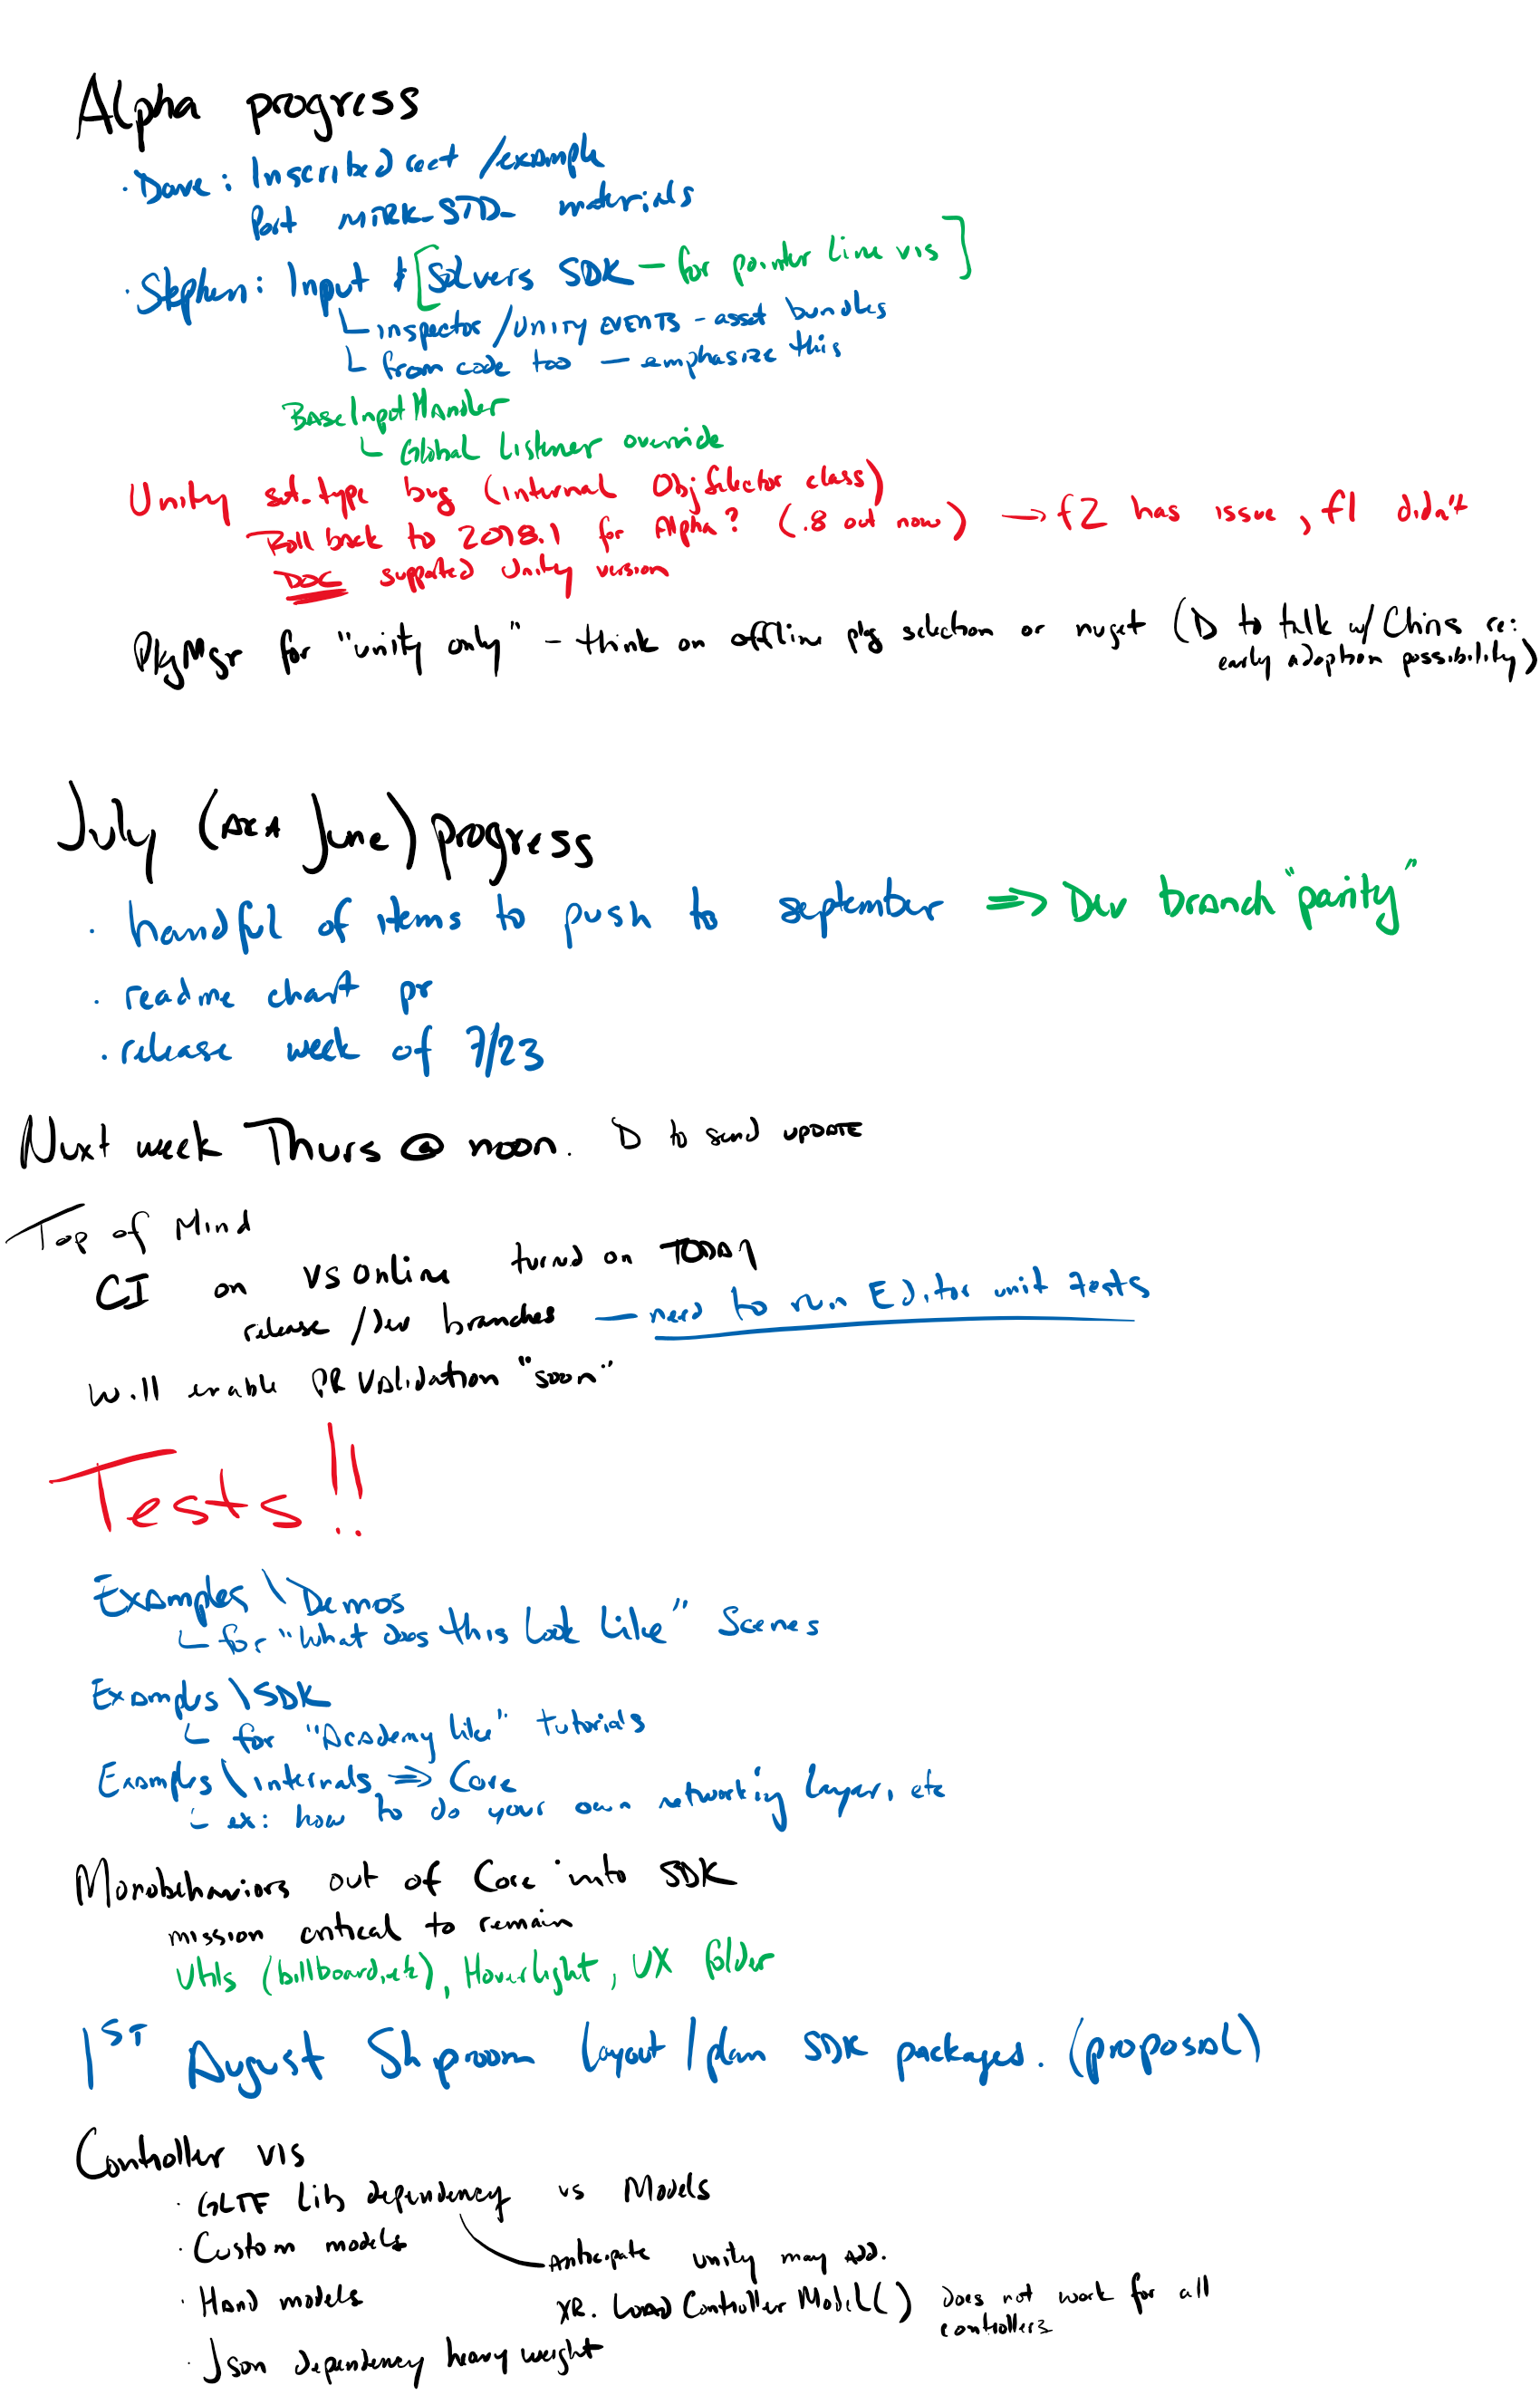 Alpha progress
· Dave: Inscribed rect /example
Port MTRK_STD_ materials
· Stephen: Input & [Solvers SDK – for pointer line vis]
inspector /UNITY EVENTS - asset bundles
from code too – emphasize this
BaseInputHandler
Global Listener override
Unity set-type bug (internal ObjSelector class)
Roll back to 2018.1 for Alpha? (.8 out now) → f2 has issue, f1 didn't
DOC supported Unity version
PkgMgr for "unity only" - think on offline pkg selection or nuget (D to talk w/ Chris re:
early adoption possibility)
July (AKA June) progress
· handful of items to push to september ⇒ Dev branch "parity"
· readme chart pr
· release week of 7/23
Next week Thurs @ noon. D to send UPDATE
Top of Mind
CI on VSOnline turned on TODAY
release /dev branches — need to run Editor unit tests
Will enable PR Validation "soon"
Tests!!
Examples \Demos
for "What does this look like" Scenes
Examples \SDK
for "Academy like" tutorials
Examples \internals ⇒ Core
ex: how to do your own networking layer, etc
Monobehaviors out of Core into SDK
mission critical to remain
Utils (billboard, etc), Hoverlight, UX folder
1ST August Shiproom layout / plan SDK packages. (proposal)
Controller vis
· GLTF Lib dependency vs Models
· Custom models
Anticipate unity may add.
· Hand models
XR. LOAD Controller Model() does not work for all
controllers
· Json dependency heavy weight